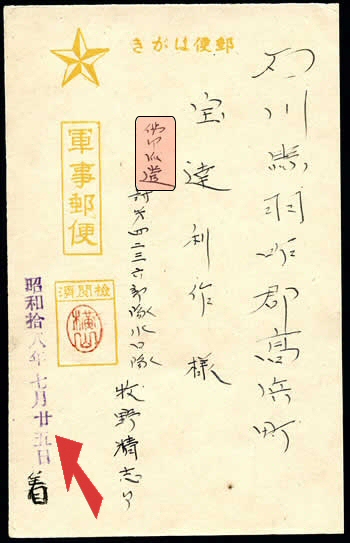 郵便はがき
石川縣羽咋郡高浜町
宝達利作様
佛印派遣討第四二三六部隊水口隊
牧野精志
軍事郵便
檢閲濟
横山
昭和拾八年七月廿五日着